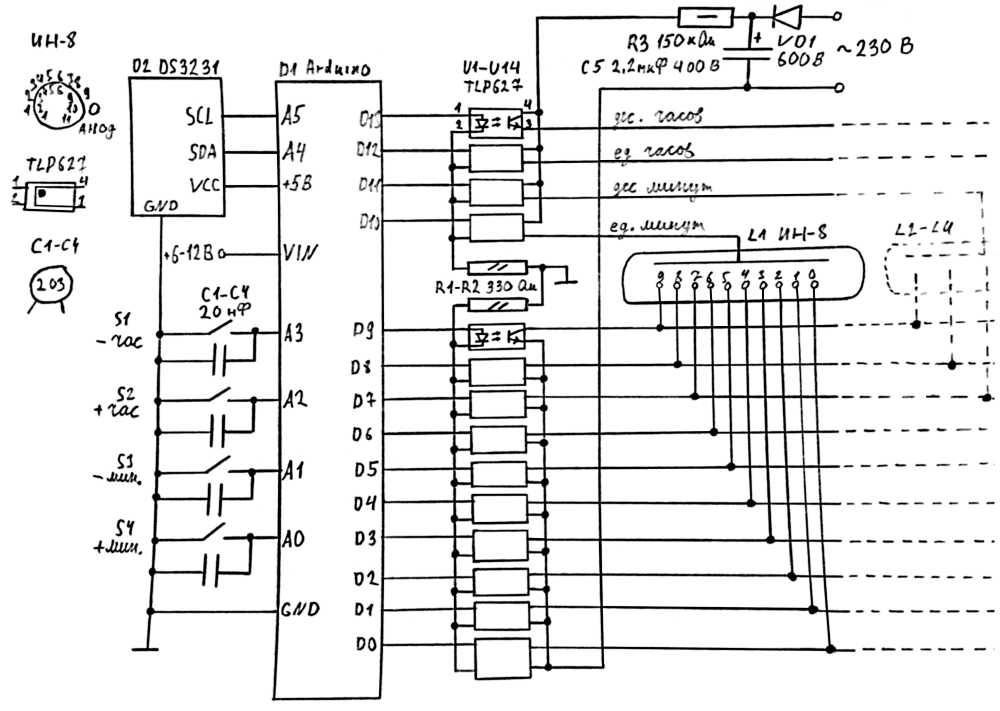 ИН-8
1 2 3 4 5 6 7 8 9 0
АНОД
TLP627
1 4
2 3
C1-C4
203
D2 DS3231
SCL
SDA
VCC
GND
+6-12В
C1-C4
20 нФ
S1
- час
S2
+ час
S3
- мин.
S4
+ мин.
D1 Arduino
A5
A4
+5В
VIN
A3
A2
A1
A0
GND
D13
D12
D11
D10
D9
D8
D7
D6
D5
D4
D3
D2
D1
D0
U1-U14
TLP627
1 4
2 3
R1-R2 330 Ом
R3 150кОм
C5 2,2мкФ 400В
+
VD1
600В
~230 В
дес. часов
ед. часов
дес. минут
ед. минут
L1 ИН-8
9 8 7 6 5 4 3 2 1 0
L2-L4